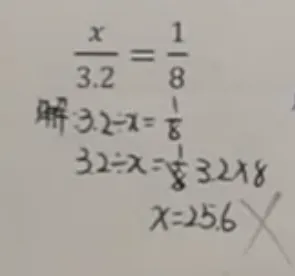 x/3.2 = 1/8
解:3.2÷x=1/8
3.2÷x=1/8 3.2×8
x=25.6